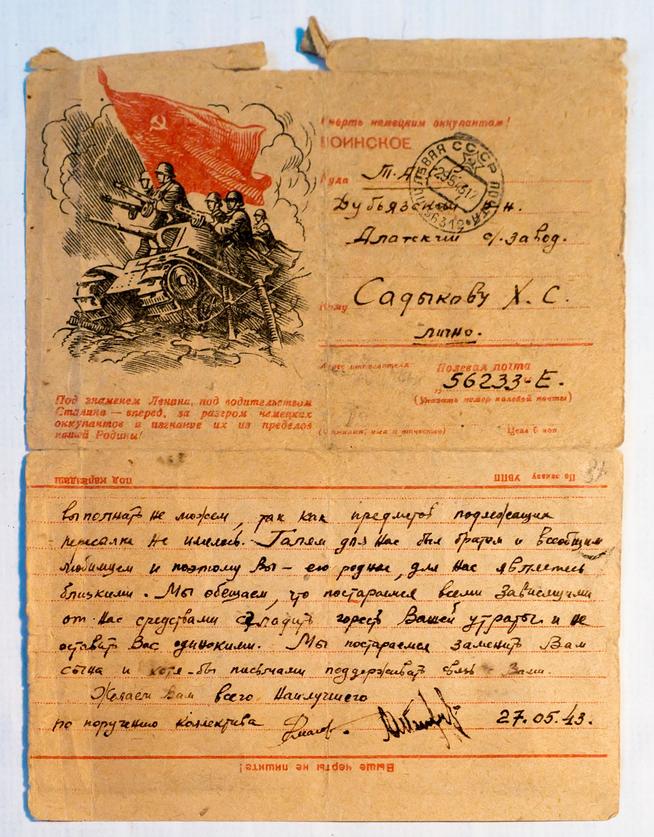 Смерть немецким оккупантам!
ВОИНСКОЕ
Куда Т.А.
ПОЛЕВАЯ ПОЧТА СССР
Дубьязский н.
Алатский с/. завод.
Кому Садыкову Х. С.
лично.
Адрес отправителя Полевая почта
56233-Е.
(Указать номер полевой почты)
Под знаменем Ленина, под водительством
Сталина — вперед, за разгром немецких
оккупантов и изгнание их из пределов
нашей Родины!
(Фамилия, имя и отчество) Цена 5 коп.
По заказу УВПП под карандаш
выполнять не можем, так как предметов подлежащих
пересылке не имелось. Галям для нас был братом и всеобщим
любимцем и поэтому Вы – его родные, для нас являетесь
близкими. Мы обещаем, что постараемся всеми зависящими
от нас средствами сгладить горесть Вашей утраты и не
оставить Вас одинокими. Мы постараемся заменить Вам
сына и хотя-бы письмами поддерживать связь с Вами.
Желаем Вам всего наилучшего
по поручению коллектива 27.05.43.
Выше черты не пишите!